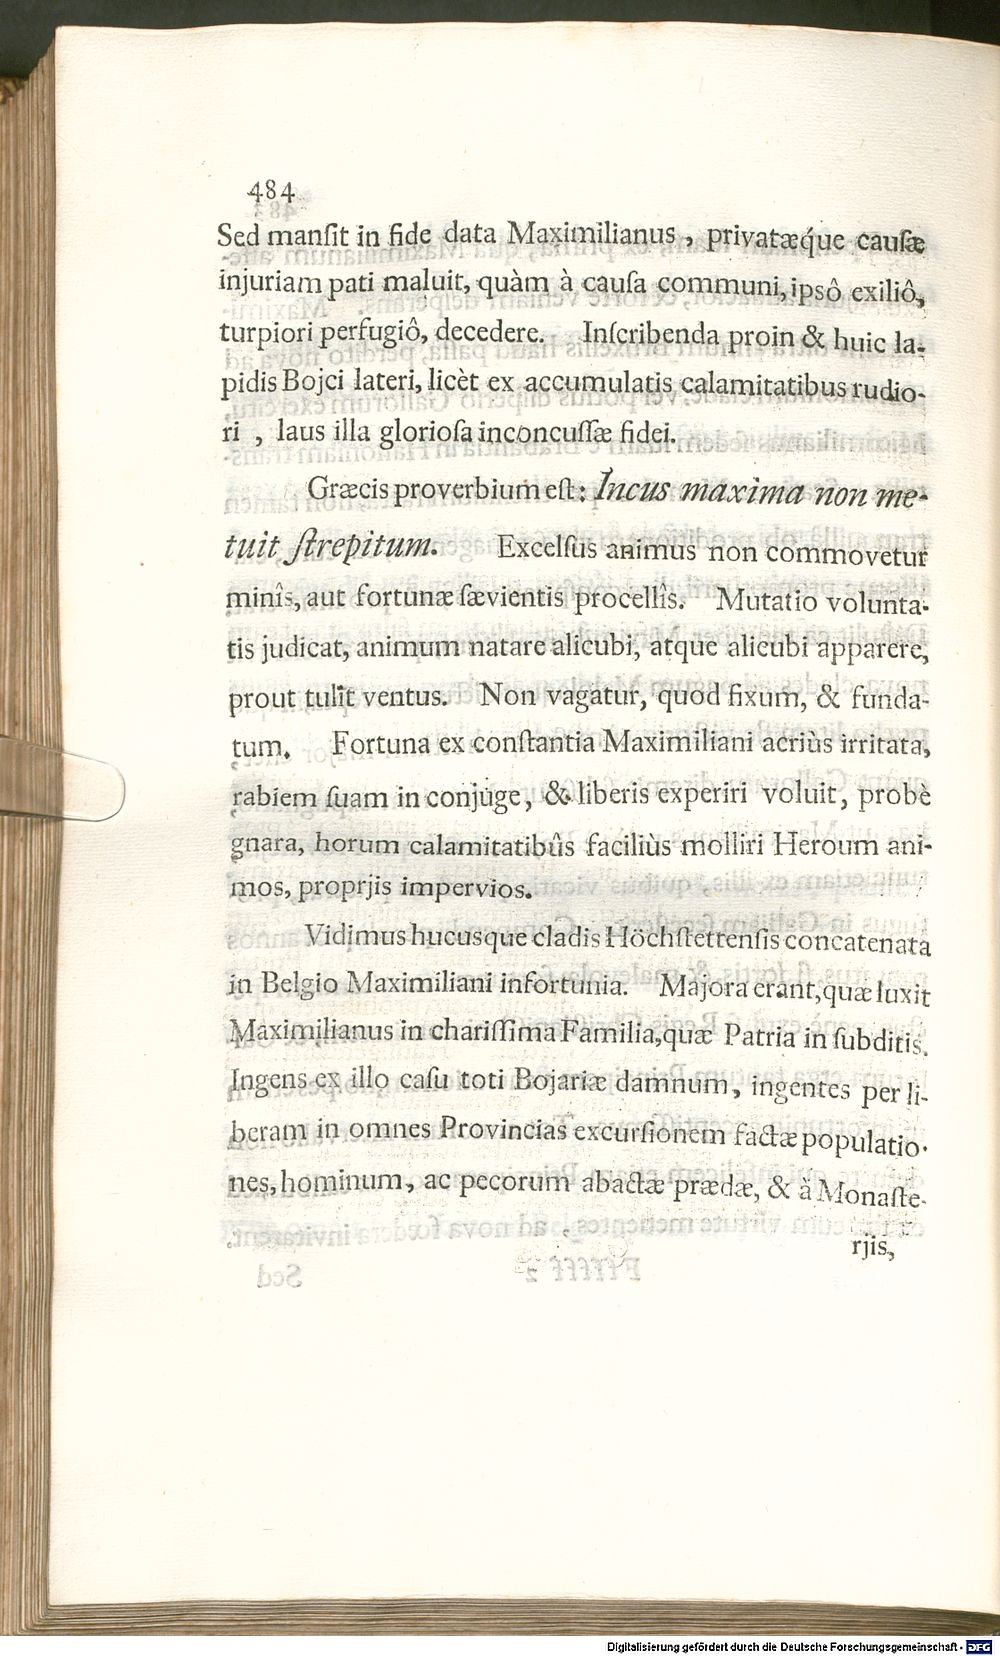 484
Sed manſit in fide data Maximilianus, privatæq́ue cauſæ
injuriam pati maluit, quàm à cauſa communi, ipsô exiliô,
turpiori perfugiô, decedere. Inſcribenda proin & huic la-
pidis Bojci lateri, licèt ex accumulatis calamitatibus rudio-
ri , laus illa glorioſa inconcuſſæ fidei.
Græcis proverbium eſt: Incus maxima non me-
tuit ſtrepitum. Excelſus animus non commovetur
minîs, aut fortunæ ſævientis procellîs. Mutatio volunta-
tis judicat, animum natare alicubi, atque alicubi apparere,
prout tulit ventus. Non vagatur, quod fixum, & funda-
tum. Fortuna ex conſtantia Maximiliani acriùs irritata,
rabiem ſuam in conjuge, & liberis experiri voluit, probè
gnara, horum calamitatibûs faciliùs molliri Heroum ani-
mos, proprjis impervios.
Vidimus hucusque cladis Höchſtettenſis concatenata
in Belgio Maximiliani infortunia. Majora erant, quæ luxit
Maximilianus in chariſſima Familia, quæ Patria in ſubditis.
Ingens ex illo caſu toti Bojariæ damnum, ingentes per li-
beram in omnes Provincias excurſionem factæ populatio-
nes, hominum, ac pecorum abactæ prædæ, & à Monaſte-
rjis,
Digitalisierung gefördert durch die Deutsche Forschungsgemeinschaft - DFG